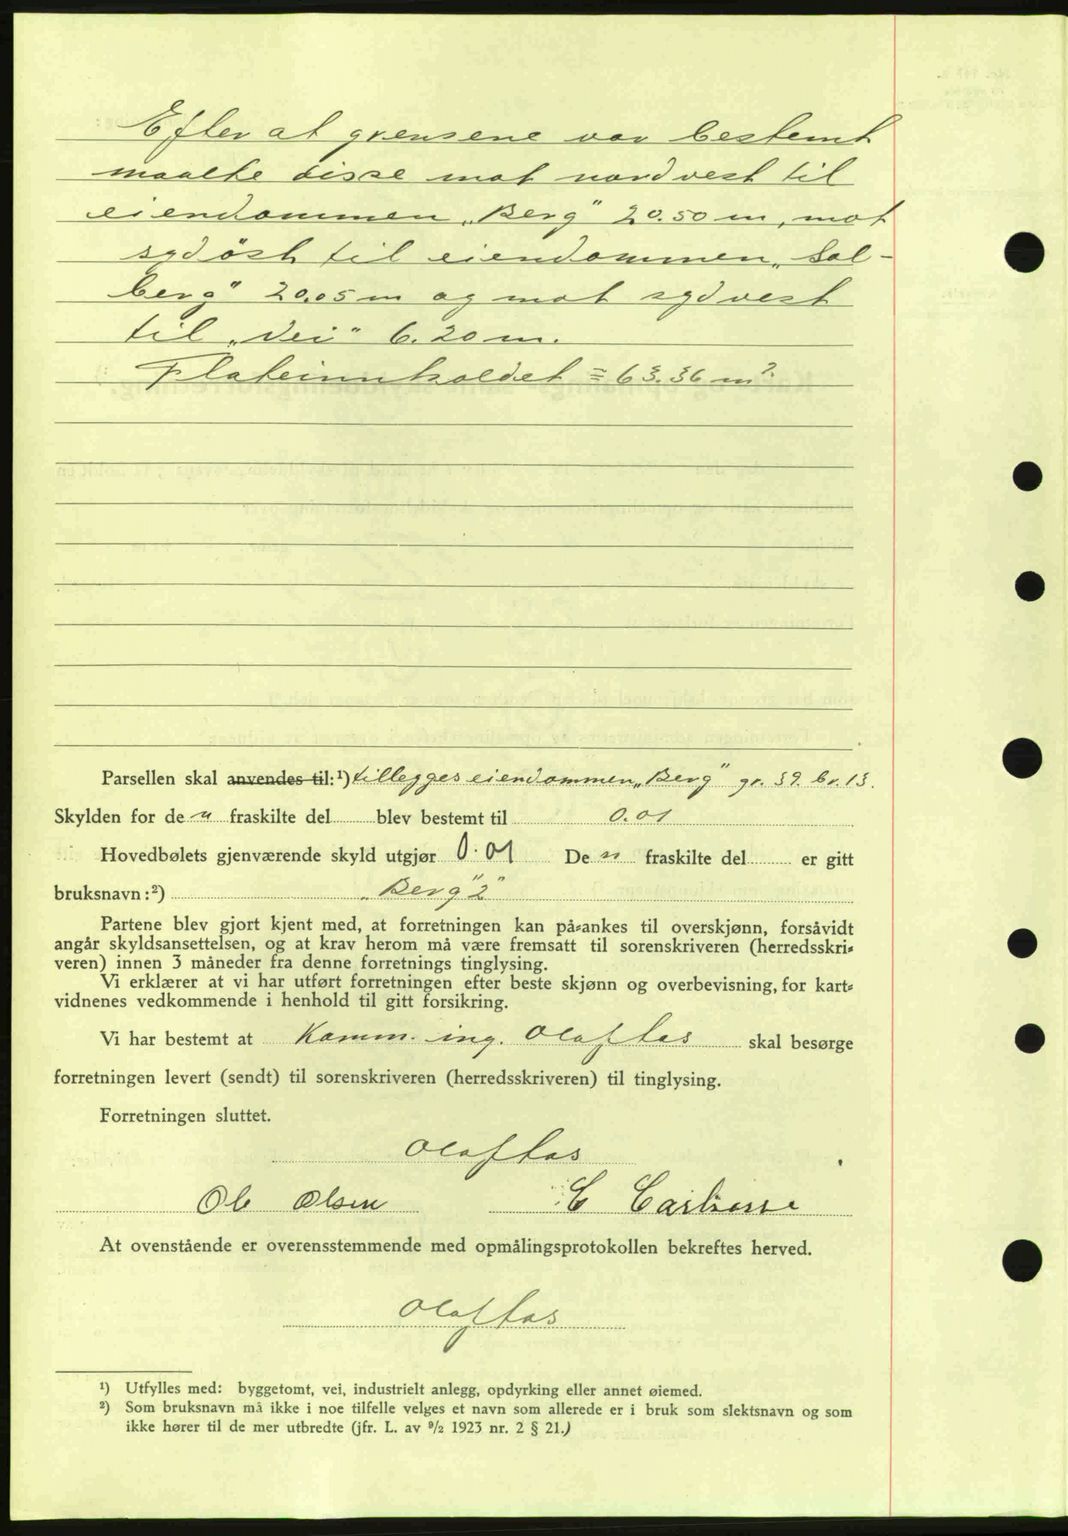 Efter at grensene var bestemt
maalte disse mot nordvest til
eiendommen „Berg" 20.50 m, mot
sydöst til eiendommen „Sol-
berg" 20.05 m og mot sydvest
til „Vei" 6.20 m.
Flateinnholdet = 63.36 m².
Parsellen skal anvendes til:¹) tillegges eiendommen „Berg" gr. 39. br. 13.
Skylden for den fraskilte del blev bestemt til 0.01
Hovedbølets gjenværende skyld utgjør 0.01 Den fraskilte del er gitt
bruksnavn:²) „Berg" 2"
Partene blev gjort kjent med, at forretningen kan på-ankes til overskjønn, forsåvidt
angår skyldsansettelsen, og at krav herom må være fremsatt til sorenskriveren (herredsskri-
veren) innen 3 måneder fra denne forretnings tinglysing.
Vi erklærer at vi har utført forretningen efter beste skjønn og overbevisning, for kart-
vidnenes vedkommende i henhold til gitt forsikring.
Vi har bestemt at Komm. ing. Olaf Aas skal besørge
forretningen levert (sendt) til sorenskriveren (herredsskriveren) til tinglysing.
Forretningen sluttet.
Olaf Aas
Ole Olsen C Carlsson
At ovenstående er overensstemmende med opmålingsprotokollen bekreftes herved.
Olaf Aas
¹) Utfylles med: byggetomt, vei, industrielt anlegg, opdyrking eller annet øiemed.
²) Som bruksnavn må ikke i noe tilfelle velges et navn som allerede er i bruk som slektsnavn og som
ikke hører til de mer utbredte (jfr. L. av 9/2 1923 nr. 2 § 21.)